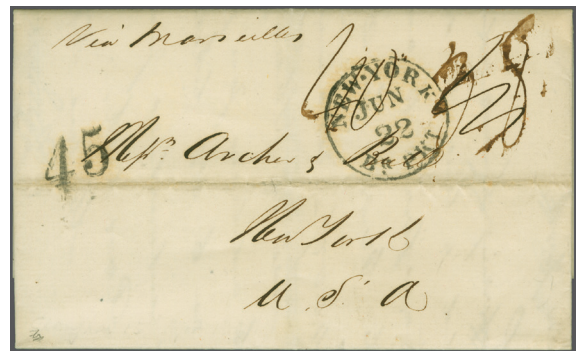 Via Marseilles
NEW-YORK
JUN
22
45
Messrs. Archer &
New York
U. S. A